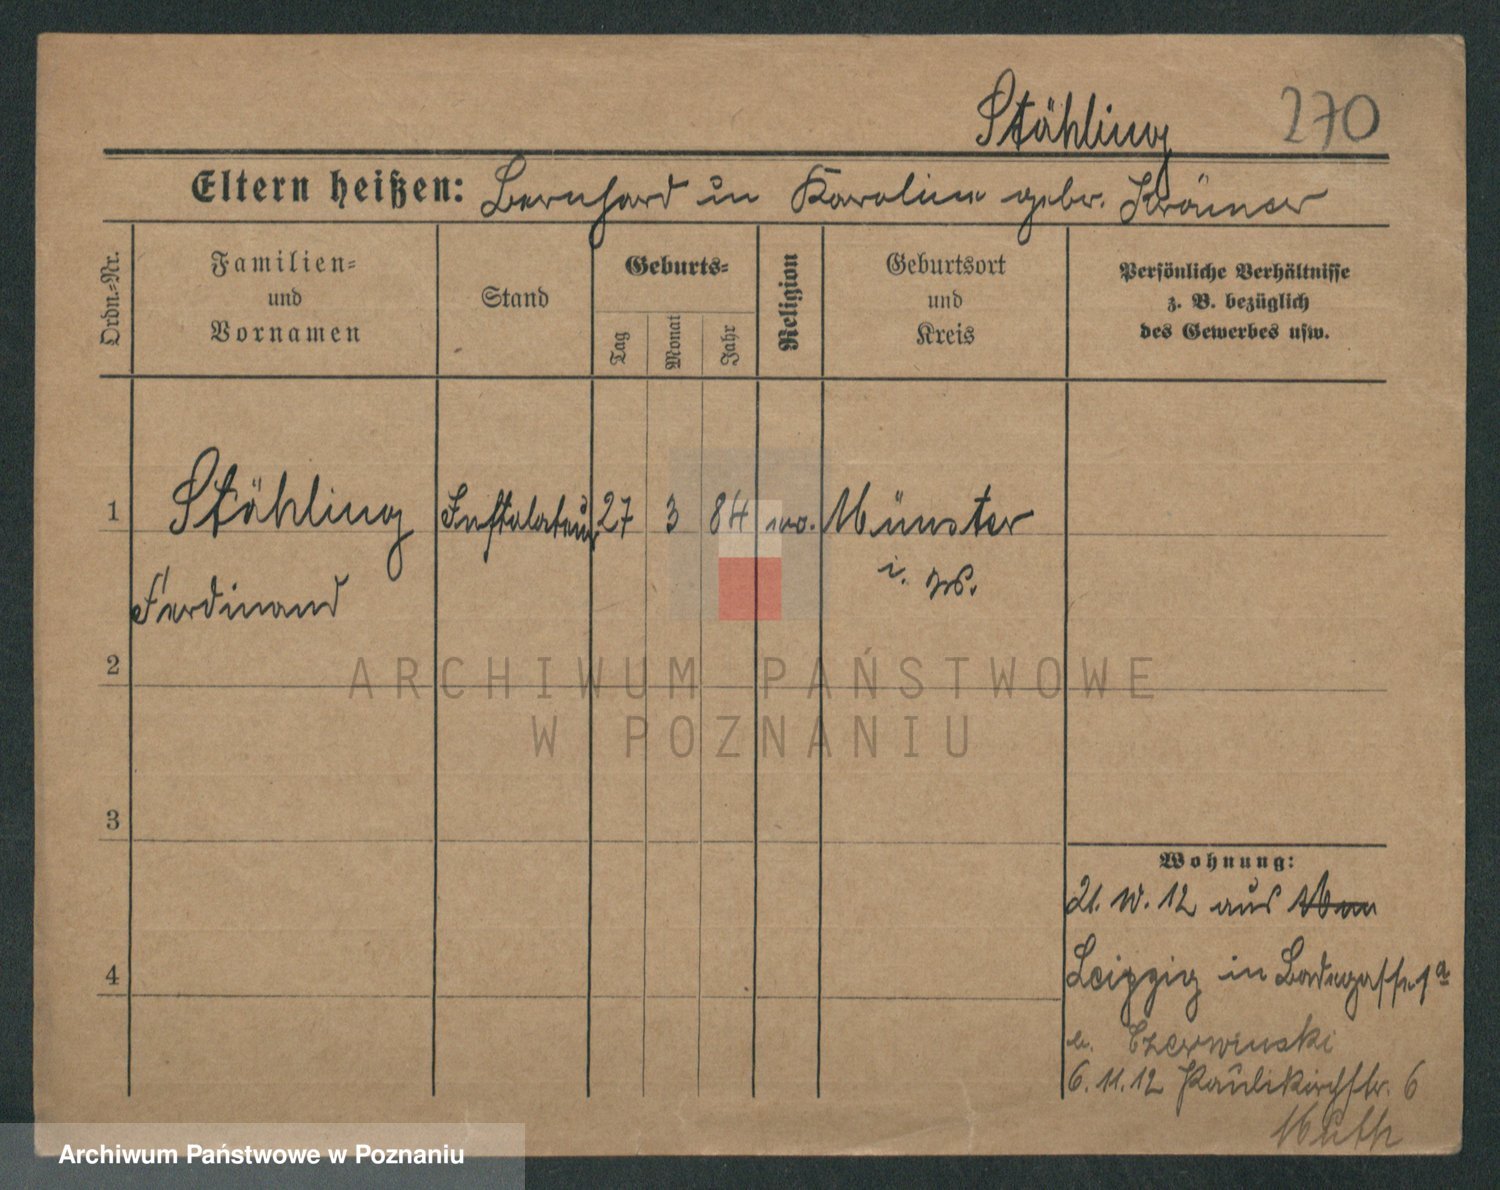 Stähling 270
Eltern heißen: Bernhard u Karoline gebr. Krämer
Ordn.-Nr.
Familien-
und
Vornamen
Stand
Geburts-
Tag
Monat
Jahr
Religion
Geburtsort
und
Kreis
Persönliche Verhältnisse
z. B. bezüglich
des Gewerbes usw.
1 Stähling Installateur 27 3 84 Münster
i. W.
Ferdinand
2
ARCHIWUM PAŃSTWOWE
W POZNANIU
3
Wohnung:
21. 12 aus
Leipzig in Badegasse 1a
b. Czerwinski
4
6.11.12 Paulikirchstr. 6
Archiwum Państwowe w Poznaniu